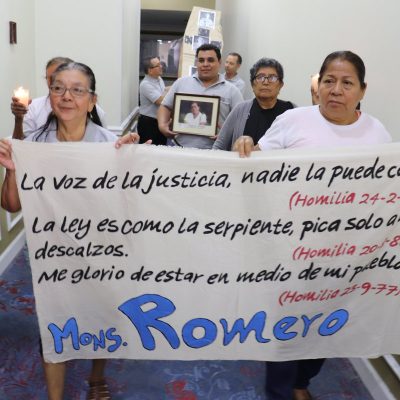 La voz de la justicia, nadie la puede
(Homilia 24-2-
La ley es como la serpiente, pica solo a
descalzos.
(Homilia
Me glorio de estar en medio de mi pueblo
(Homilia 25-9-77)
Mons. Romero